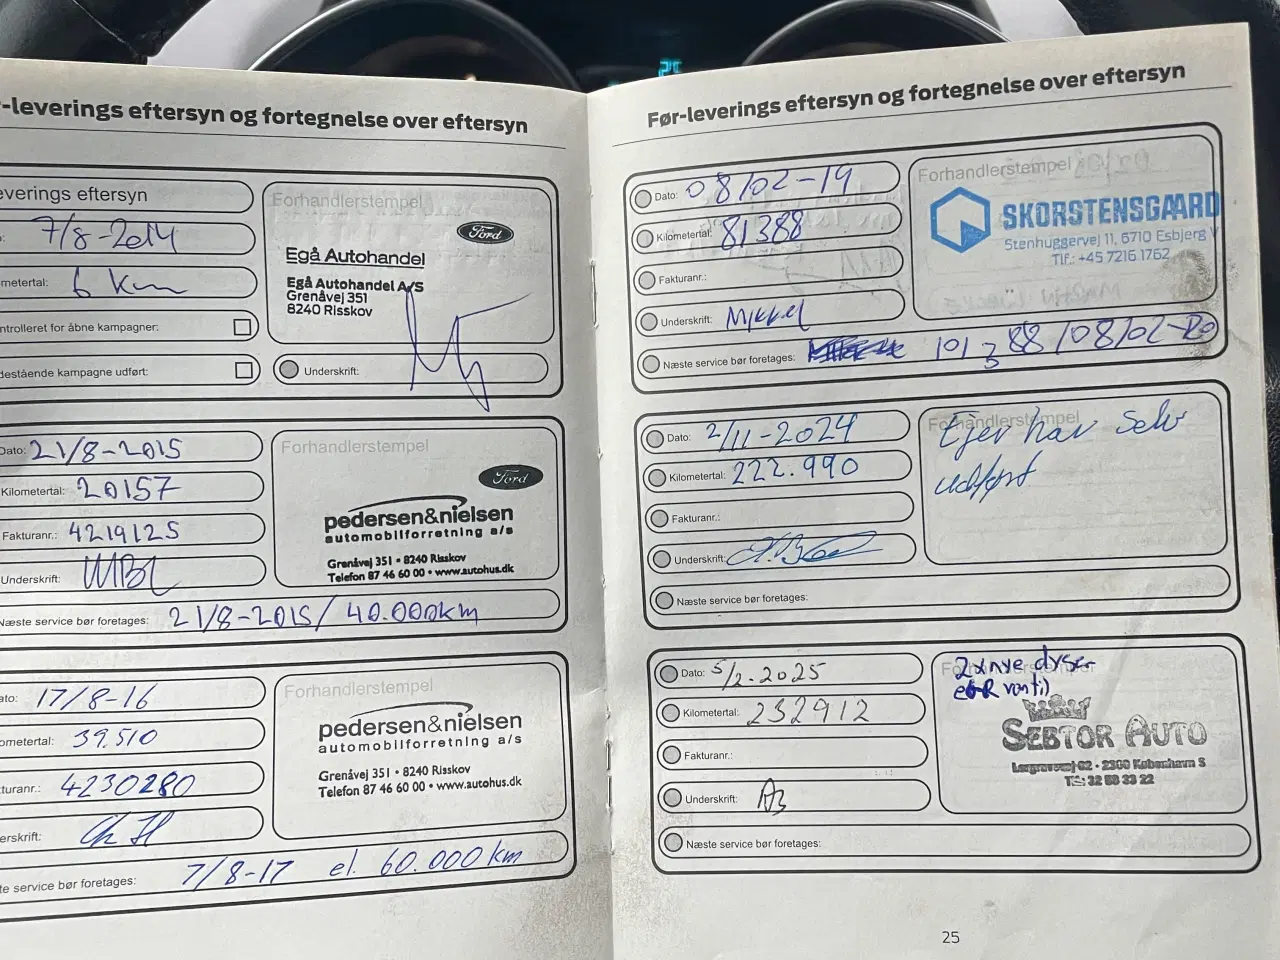 25
-leverings eftersyn og fortegnelse over eftersyn
everings eftersyn
7/8-2014
ometertal: 6 km
ntrolleret for åbne kampagner:
destående kampagne udført:
Forhandlerstempel
Ford
Egå Autohandel
Egå Autohandel A/S
Grenåvej 351
8240 Risskov
Underskrift:
Dato: 21/8-2015
Kilometertal: 20157
Fakturanr.: 4219125
Underskrift:
Næste service bør foretages: 21/8-2015/ 40.000km
Forhandlerstempel
Ford
pedersen&nielsen
automobilforretning a/s
Grenåvej 351 • 8240 Risskov
Telefon 87 46 60 00 • www.autohus.dk
ato: 17/8-16
ometertal: 39.510
turanr.: 4230280
erskrift:
te service bør foretages: 7/8-17 el. 60.000 km
Forhandlerstempel
pedersen&nielsen
automobilforretning a/s
Grenåvej 351 • 8240 Risskov
Telefon 87 46 60 00 • www.autohus.dk
Før-leverings eftersyn og fortegnelse over eftersyn
Dato: 08/02-19
Kilometertal: 81388
Fakturanr.:
Underskrift: Mikkel
Næste service bør foretages: 101388/08/02-20
Forhandlerstempel
SKORSTENSGAARD
Stenhuggervej 11, 6710 Esbjerg V
Tlf.: +45 7216 1762
Dato: 2/11-2024
Kilometertal: 222.990
Fakturanr.:
Underskrift:
Næste service bør foretages:
Forhandlerstempel
Ejer har selv
udført
Dato: 5/2.2025
Kilometertal: 232912
Fakturanr.:
Underskrift: AB
Næste service bør foretages:
Forhandlerstempel
2x nye dyser
EGR ventil
SEBTOR AUTO
2300 København S
25